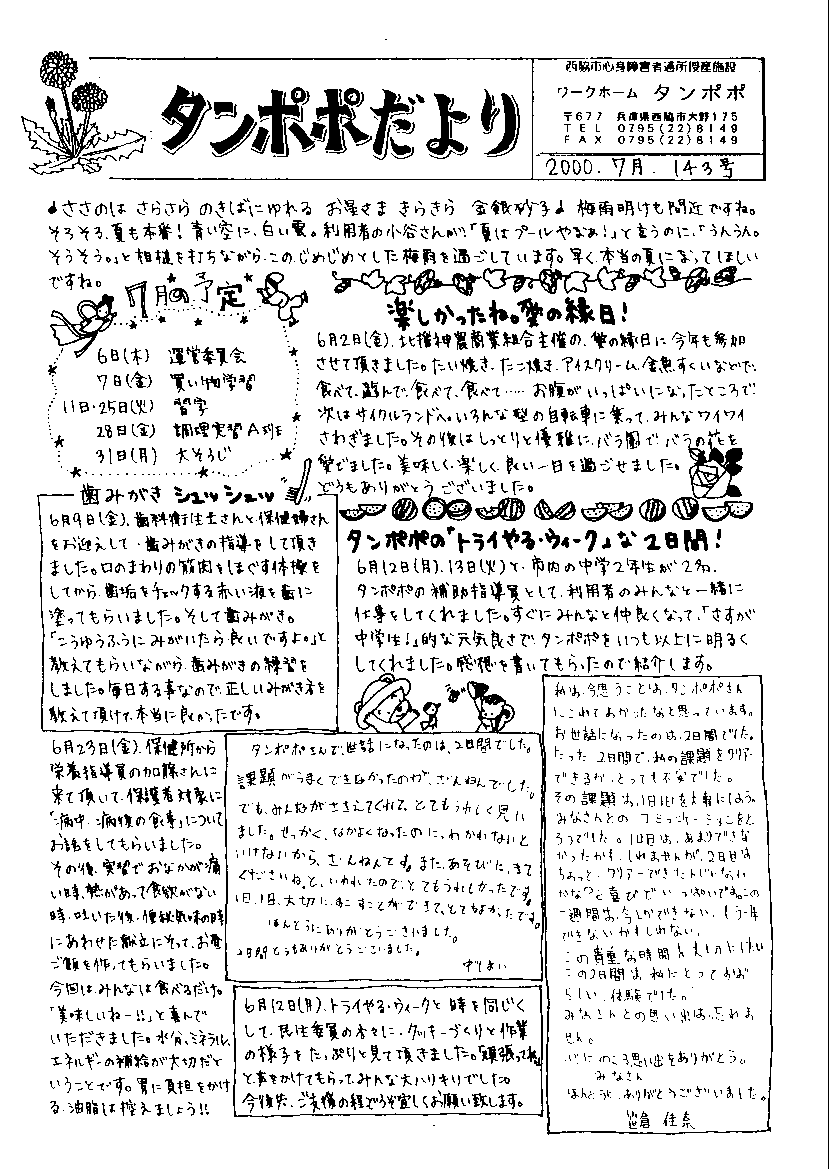 タンポポだより
西脇市心身障害者通所授産施設
ワークホーム タンポポ
〒677 兵庫県西脇市大野175
TEL 0795(22)8149
FAX 0795(22)8149
2000.7月. 143号
♪ささのは さらさら のきばにゆれる お星さま きらきら 金銀砂子♪ 梅雨明けも間近ですね。
そろそろ、夏も本番！青い空に、白い雲。利用者の小谷さんが「夏はプールやなぁ！」と言うのに、「うんうん。
そうそう。」と相槌を打ちながら、このじめじめとした梅雨を過ごしています。早く、本当の夏になってほしい
ですね。
7月の予定
6日(木) 運営委員会
7日(金) 買い物学習
11日・25日(火) 習字
28日(金) 調理実習A班
31日(月) 大そうじ
楽しかったね。愛の縁日！
6月2日(金)、北播神農商業組合主催の、愛の縁日に今年も参加
させて頂きました。たい焼き、たこ焼き、アイスクリーム、金魚すくいなどで、
食べて、遊んで、食べて、食べて…… お腹がいっぱいになったところで
次はサイクルランドへ。いろんな型の自転車に乗って、みんなワイワイ
さわぎました。その後はしっとりと優雅に、バラ園でバラの花を
愛でました。美味しく、楽しく、良い一日を過ごせました。
どうもありがとうございました。
歯みがき シュッシュッ
6月9日(金)、歯科衛生士さんと保健婦さん
をお迎えして、歯みがきの指導をして頂き
ました。口のまわりの筋肉をほぐす体操を
してから、歯垢をチェックする赤い液を歯に
塗ってもらいました。そして歯みがき。
「こうゆうふうにみがいたら良いですよ。」と
教えてもらいながら、歯みがきの練習を
しました。毎日する事なので、正しいみがき方を
教えて頂けて、本当に良かったです。
タンポポの「トライやる・ウィーク」な2日間！
6月12日(月)、13日(火)と、市内の中学2年生が2名、
タンポポの補助指導員として、利用者のみんなと一緒に
仕事をしてくれました。すぐにみんなと仲良くなって、「さすが
中学生！」的な元気良さで、タンポポをいつも以上に明るく
してくれました。感想を書いてもらったので紹介します。
6月23日(金)、保健所から
栄養指導員の加藤さんに
来て頂いて、保護者対象に
「病中、病後の食事」について
お話をしてもらいました。
その後、実習でおなかが痛
い時、熱があって食欲がない
時、吐いた後、便秘気味の時
にあわせた献立にそって、お昼
ご飯を作ってもらいました。
今回は、みんなは食べるだけ。
「美味しいねー!!」と喜んで
いただきました。水分、ミネラル、
エネルギーの補給が大切だと
いうことです。胃に負担をかけ
る、油脂は控えましょう!!
タンポポさんで、世話になったのは、2日間でした。
課題がうまくできなかったのが、ざんねんでした。
でも、みんながささえてくれて、とてもうれしく思い
ました。せっかく、なかよくなったのに、わかれないと
いけないから、ざんねんです。また、あそびに、きて
くださいね。と、いわれたので、とてもうれしかったです。
1日、1日、大切に、すごすことができて、とてもよかったです。
ほんとうにありがとうございました。
2日間どうもありがとうございました。
6月12日(月)、トライやる・ウィークと時を同じく
して、民生委員の方々に、クッキーづくりと作業
の様子をたっぷりと見て頂きました。「頑張ってね」
と声をかけてもらって、みんな大ハリキリでした。
今後共、ご支援の程どうぞ宜しくお願い致します。
私は、今思うことは、タンポポさん
にこれてよかったなと思っています。
お世話になったのは、2日間でした。
たった2日間で、私の課題をクリアー
できるか、とっても不安でした。
その課題は、1日1日を大事にしよう。
みなさんとのコミュニケーションをと
ろうでした。1日目は、あまりできな
かったかもしれませんが、2日目は
ちょっと、クリアーできたんじゃない
かな？と喜びでいっぱいです。この
一週間は、今しかできない、もう一度
できないかもしれない。
この貴重な時間を大切にしたい
この2日間は、私にとってすば
らしい、体験でした。
みなさんとの思い出は、忘れま
せん。
心にのこる思い出をありがとう。
みなさん
ほんとうに、ありがとうございました。